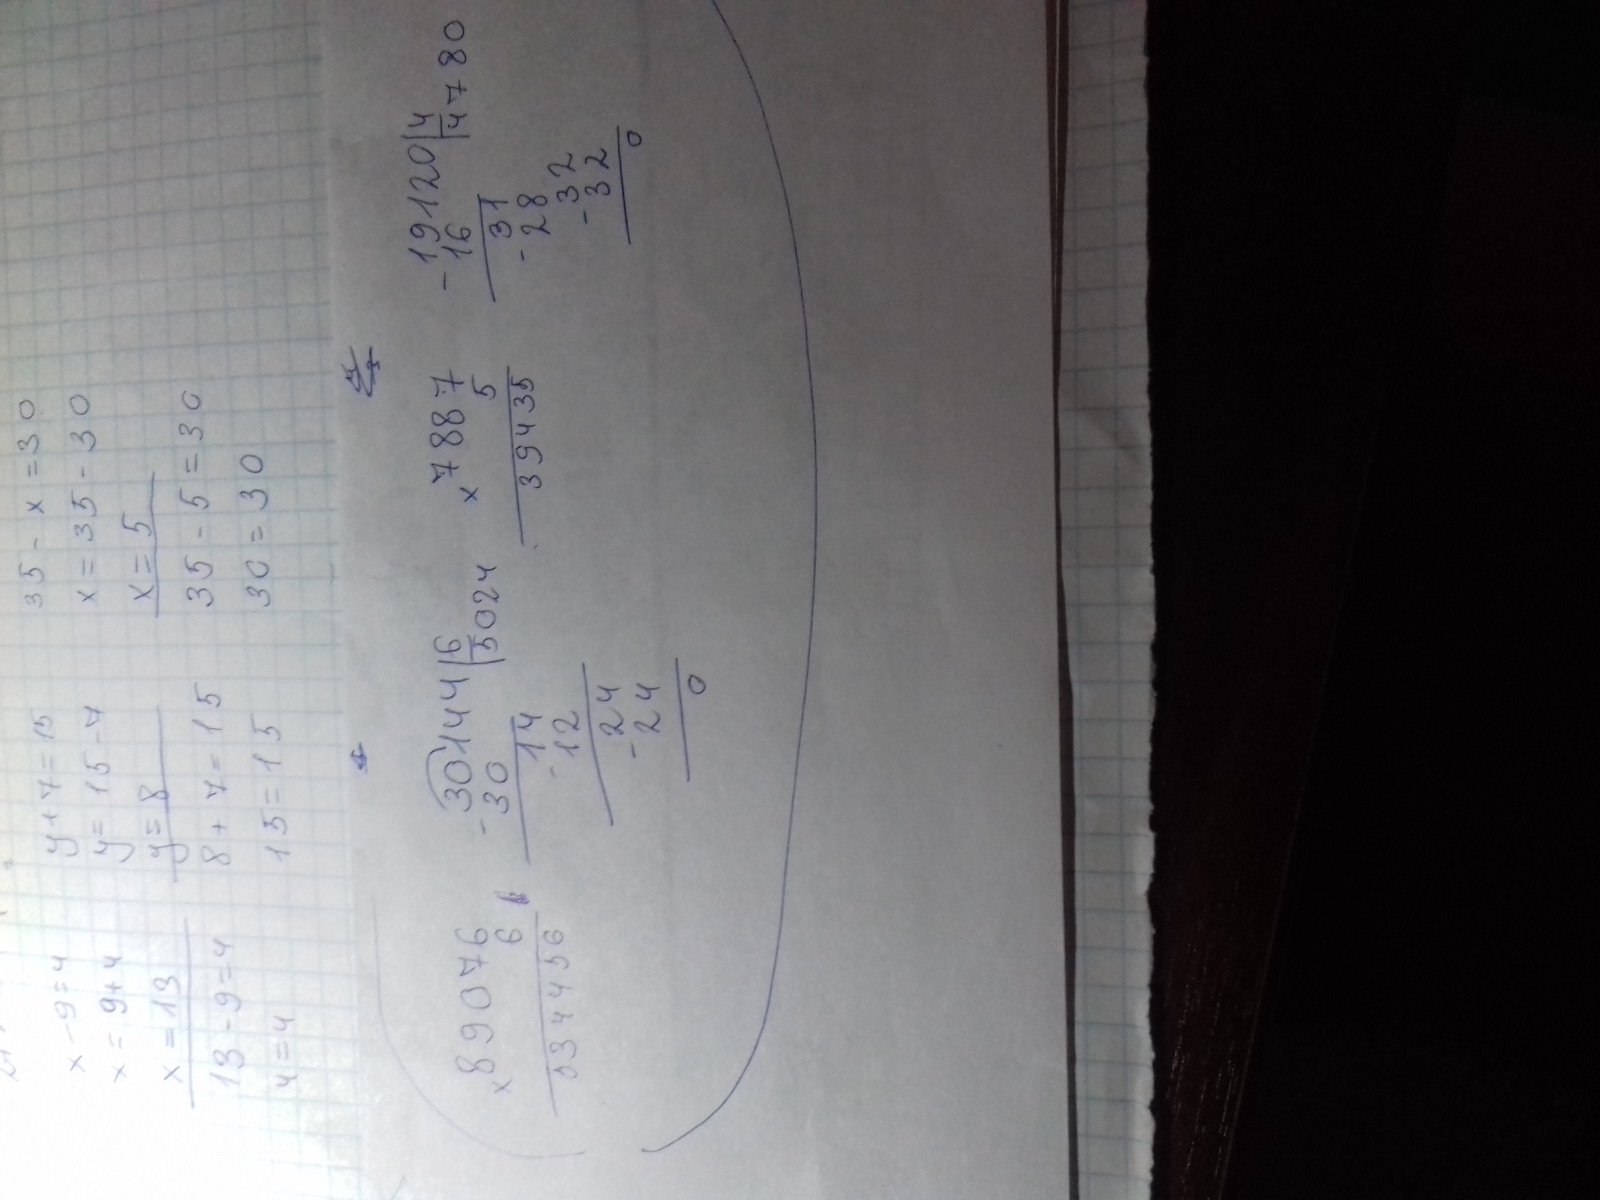 x - 9 = 4
x = 9 + 4
x = 13
13 - 9 = 4
4 = 4
y + 7 = 15
y = 15 - 7
y = 8
8 + 7 = 15
15 = 15
35 - x = 30
x = 35 - 30
x = 5
35 - 5 = 30
30 = 30
x 89076
6
534456
- 30144 | 6
30 | 5024
14
- 12
24
- 24
0
x 7887
5
39435
- 19120 | 4
16 | 4780
31
- 28
32
- 32
0